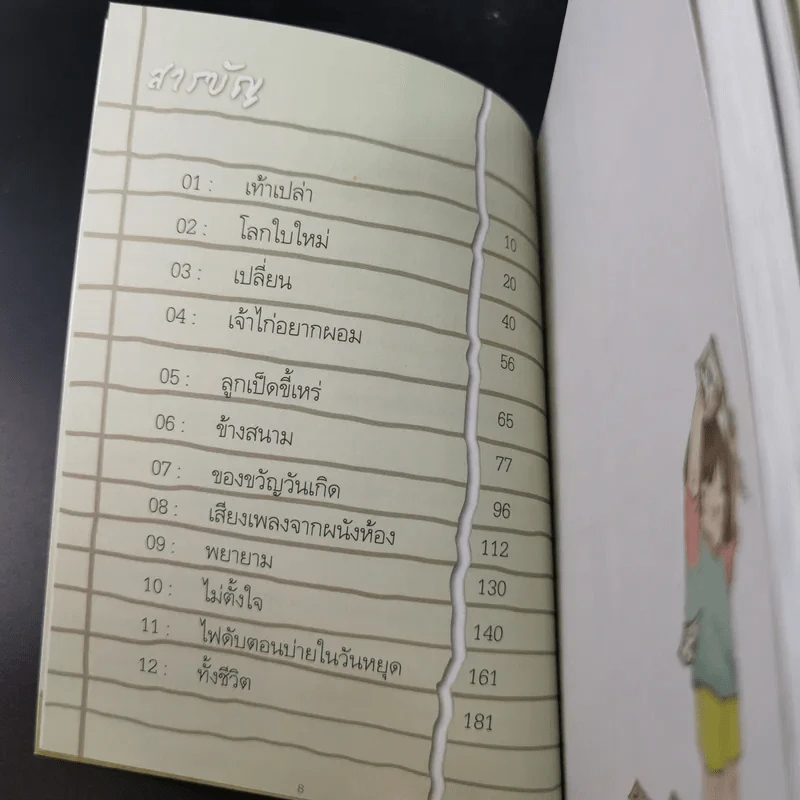 สารบัญ
01 : เท้าเปล่า 10
02 : โลกใบใหม่ 20
03 : เปลี่ยน 40
04 : เจ้าไก่อยากผอม 56
05 : ลูกเป็ดขี้เหร่ 65
06 : ข้างสนาม 77
07 : ของขวัญวันเกิด 96
08 : เสียงเพลงจากผนังห้อง 112
09 : พยายาม 130
10 : ไม่ตั้งใจ 140
11 : ไฟดับตอนบ่ายในวันหยุด 161
12 : ทั้งชีวิต 181
8